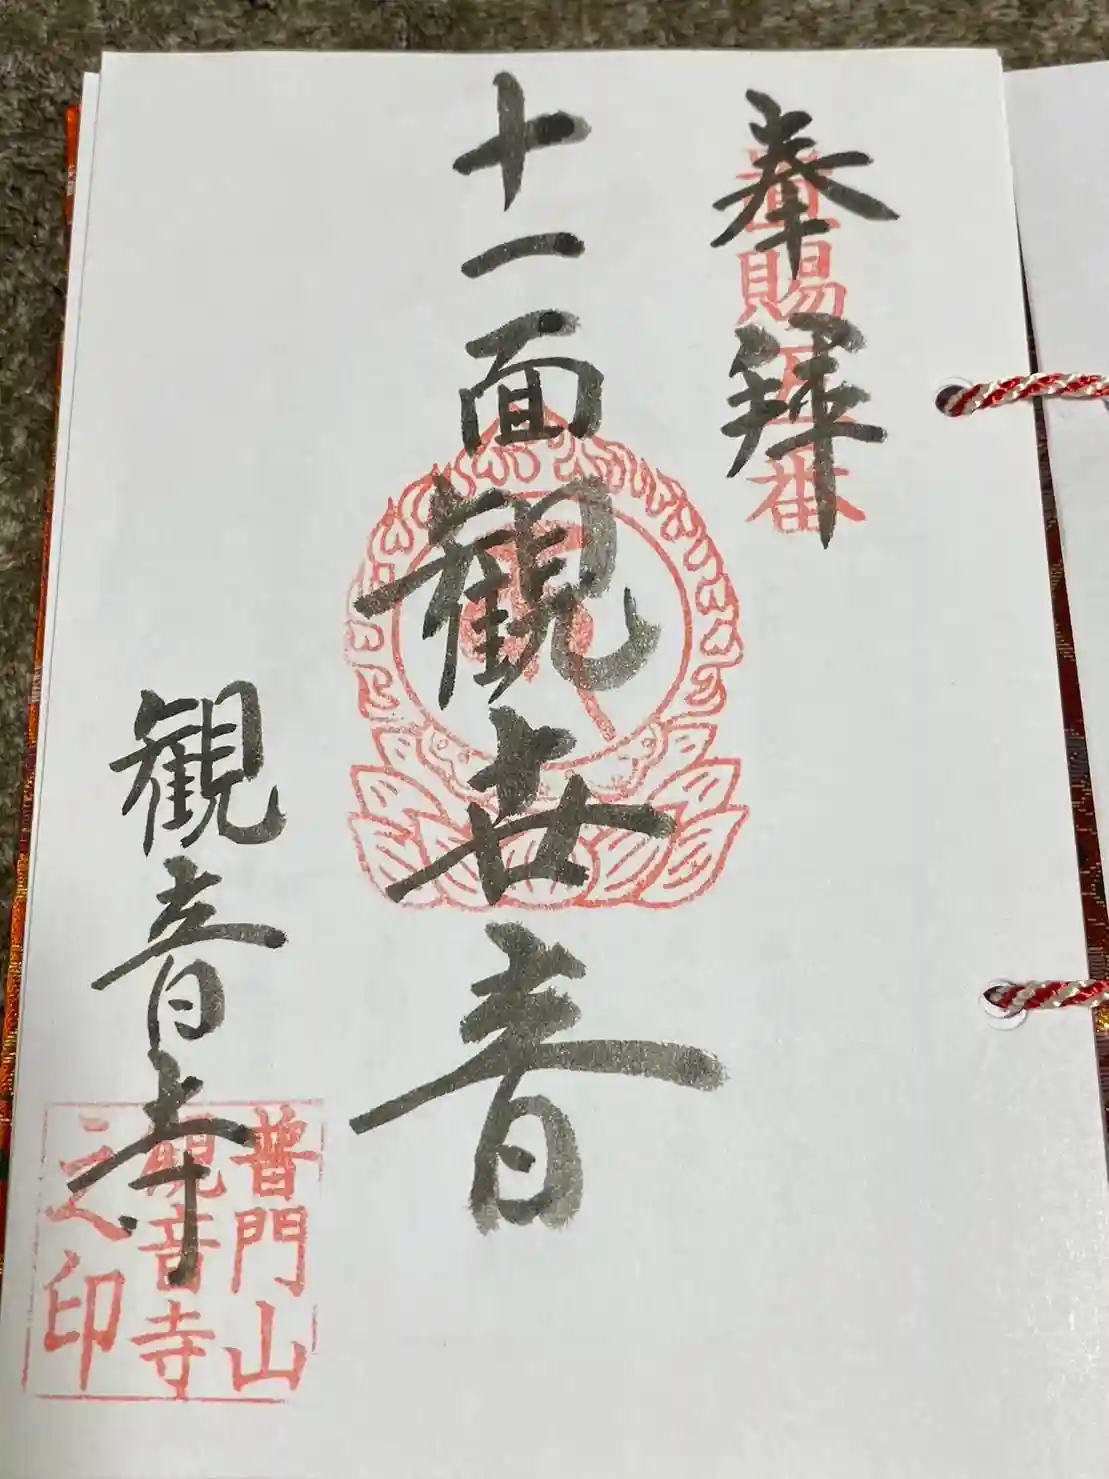 奉拝
賜
番
十一面観世音
観音寺
普門山
観音寺
之印